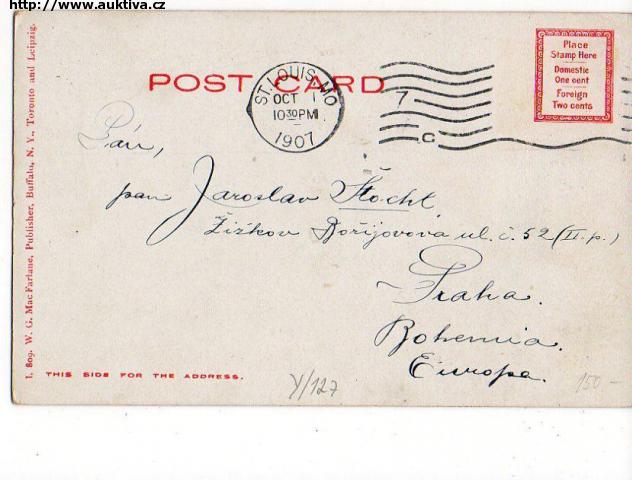 http://www.auktiva.cz
POST CARD
ST. LOUIS, MO
OCT 1
10 30 PM
1907
7
C
Place
Stamp Here
Domestic
One cent
Foreign
Two cents
Pán,
pan Jaroslav
Žižkov ul. č. 52 (II. p.)
Praha.
Bohemia.
Europa.
I. 809. W. G. MacFarlane, Publisher, Buffalo, N. Y., Toronto and Leipzig.
THIS SIDE FOR THE ADDRESS.
Y/127
150 -